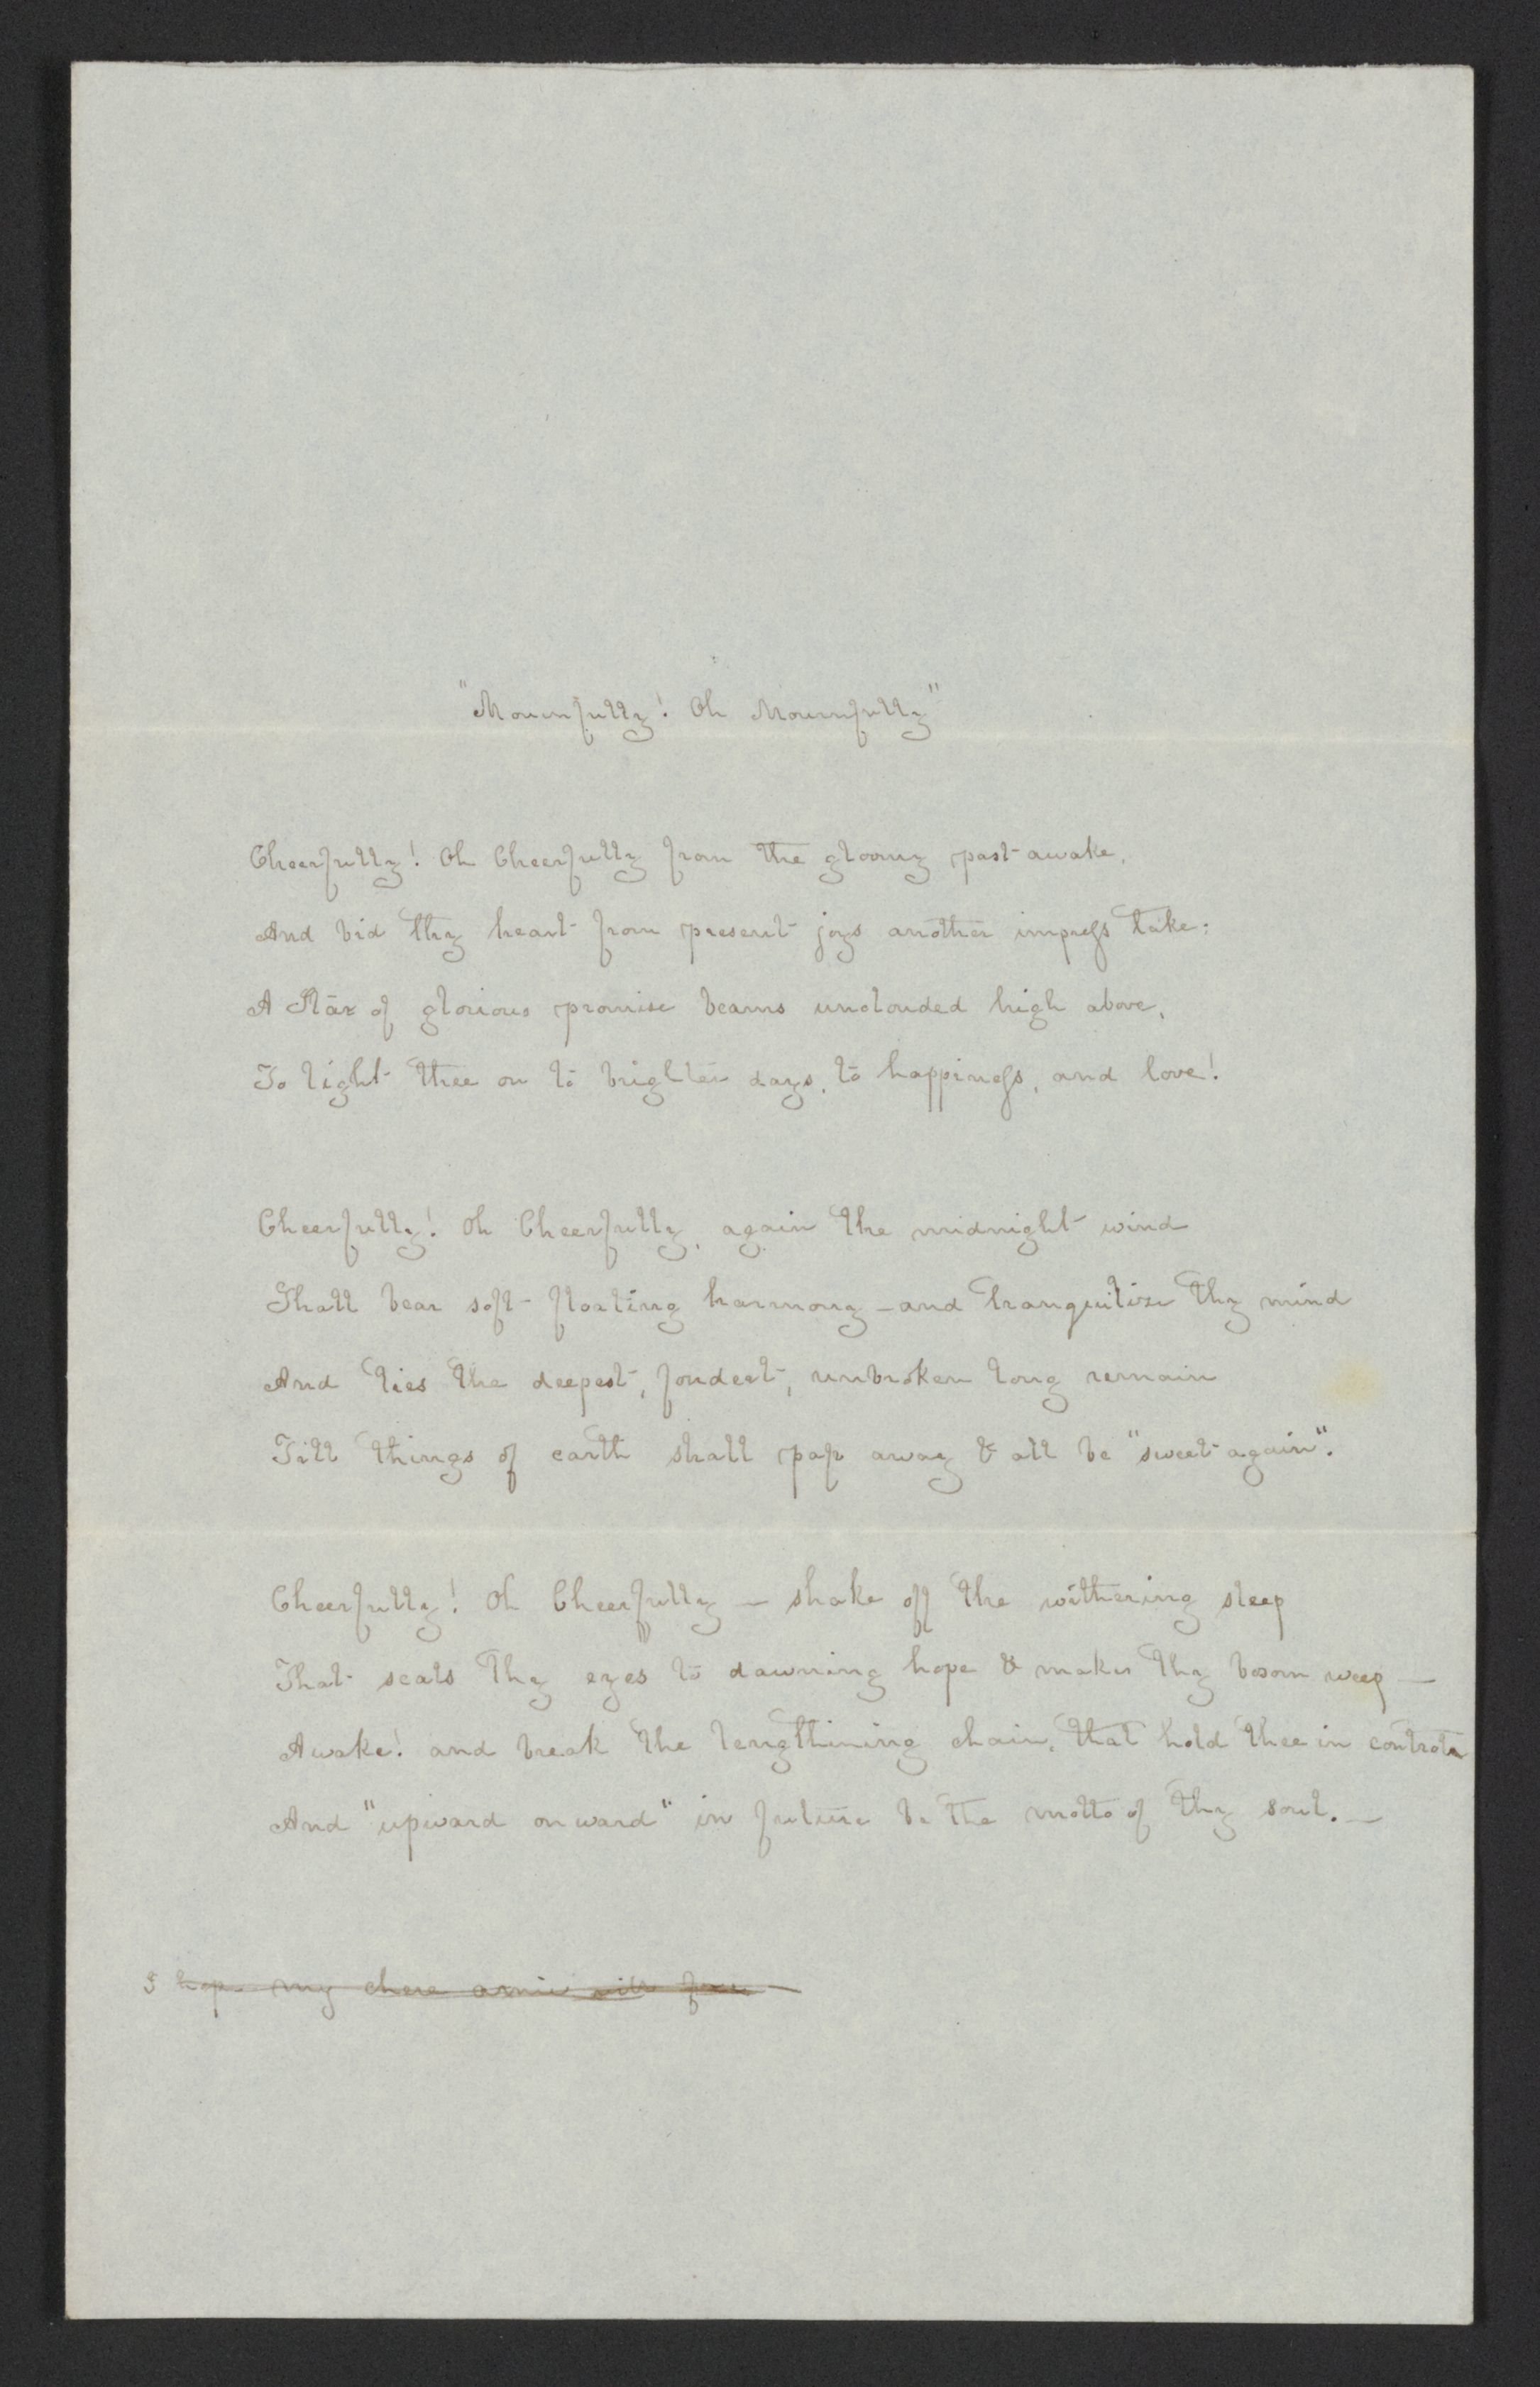 "Mournfully! Oh Mournfully"
Cheerfully! Oh Cheerfully from the gloomy past awake,
And bid thy heart from present joys another impress take:
A Star of glorious promise beams unclouded high above,
To light thee on to brighter days, to happiness, and love!
Cheerfully! Oh Cheerfully, again the midnight wind
Shall bear soft floating harmony - and tranquilize thy mind
And ties the deepest, fondest, unbroken long remain
Till things of earth shall pass away & all be "sweet again".
Cheerfully! Oh Cheerfully — shake off the withering sleep
That seals thy eyes to dawning hope & makes thy bosom weep —
Awake! and break the lengthining chain, that hold thee in control
And "upward onward" in future be the motto of thy soul. —
I hope my chere amie will